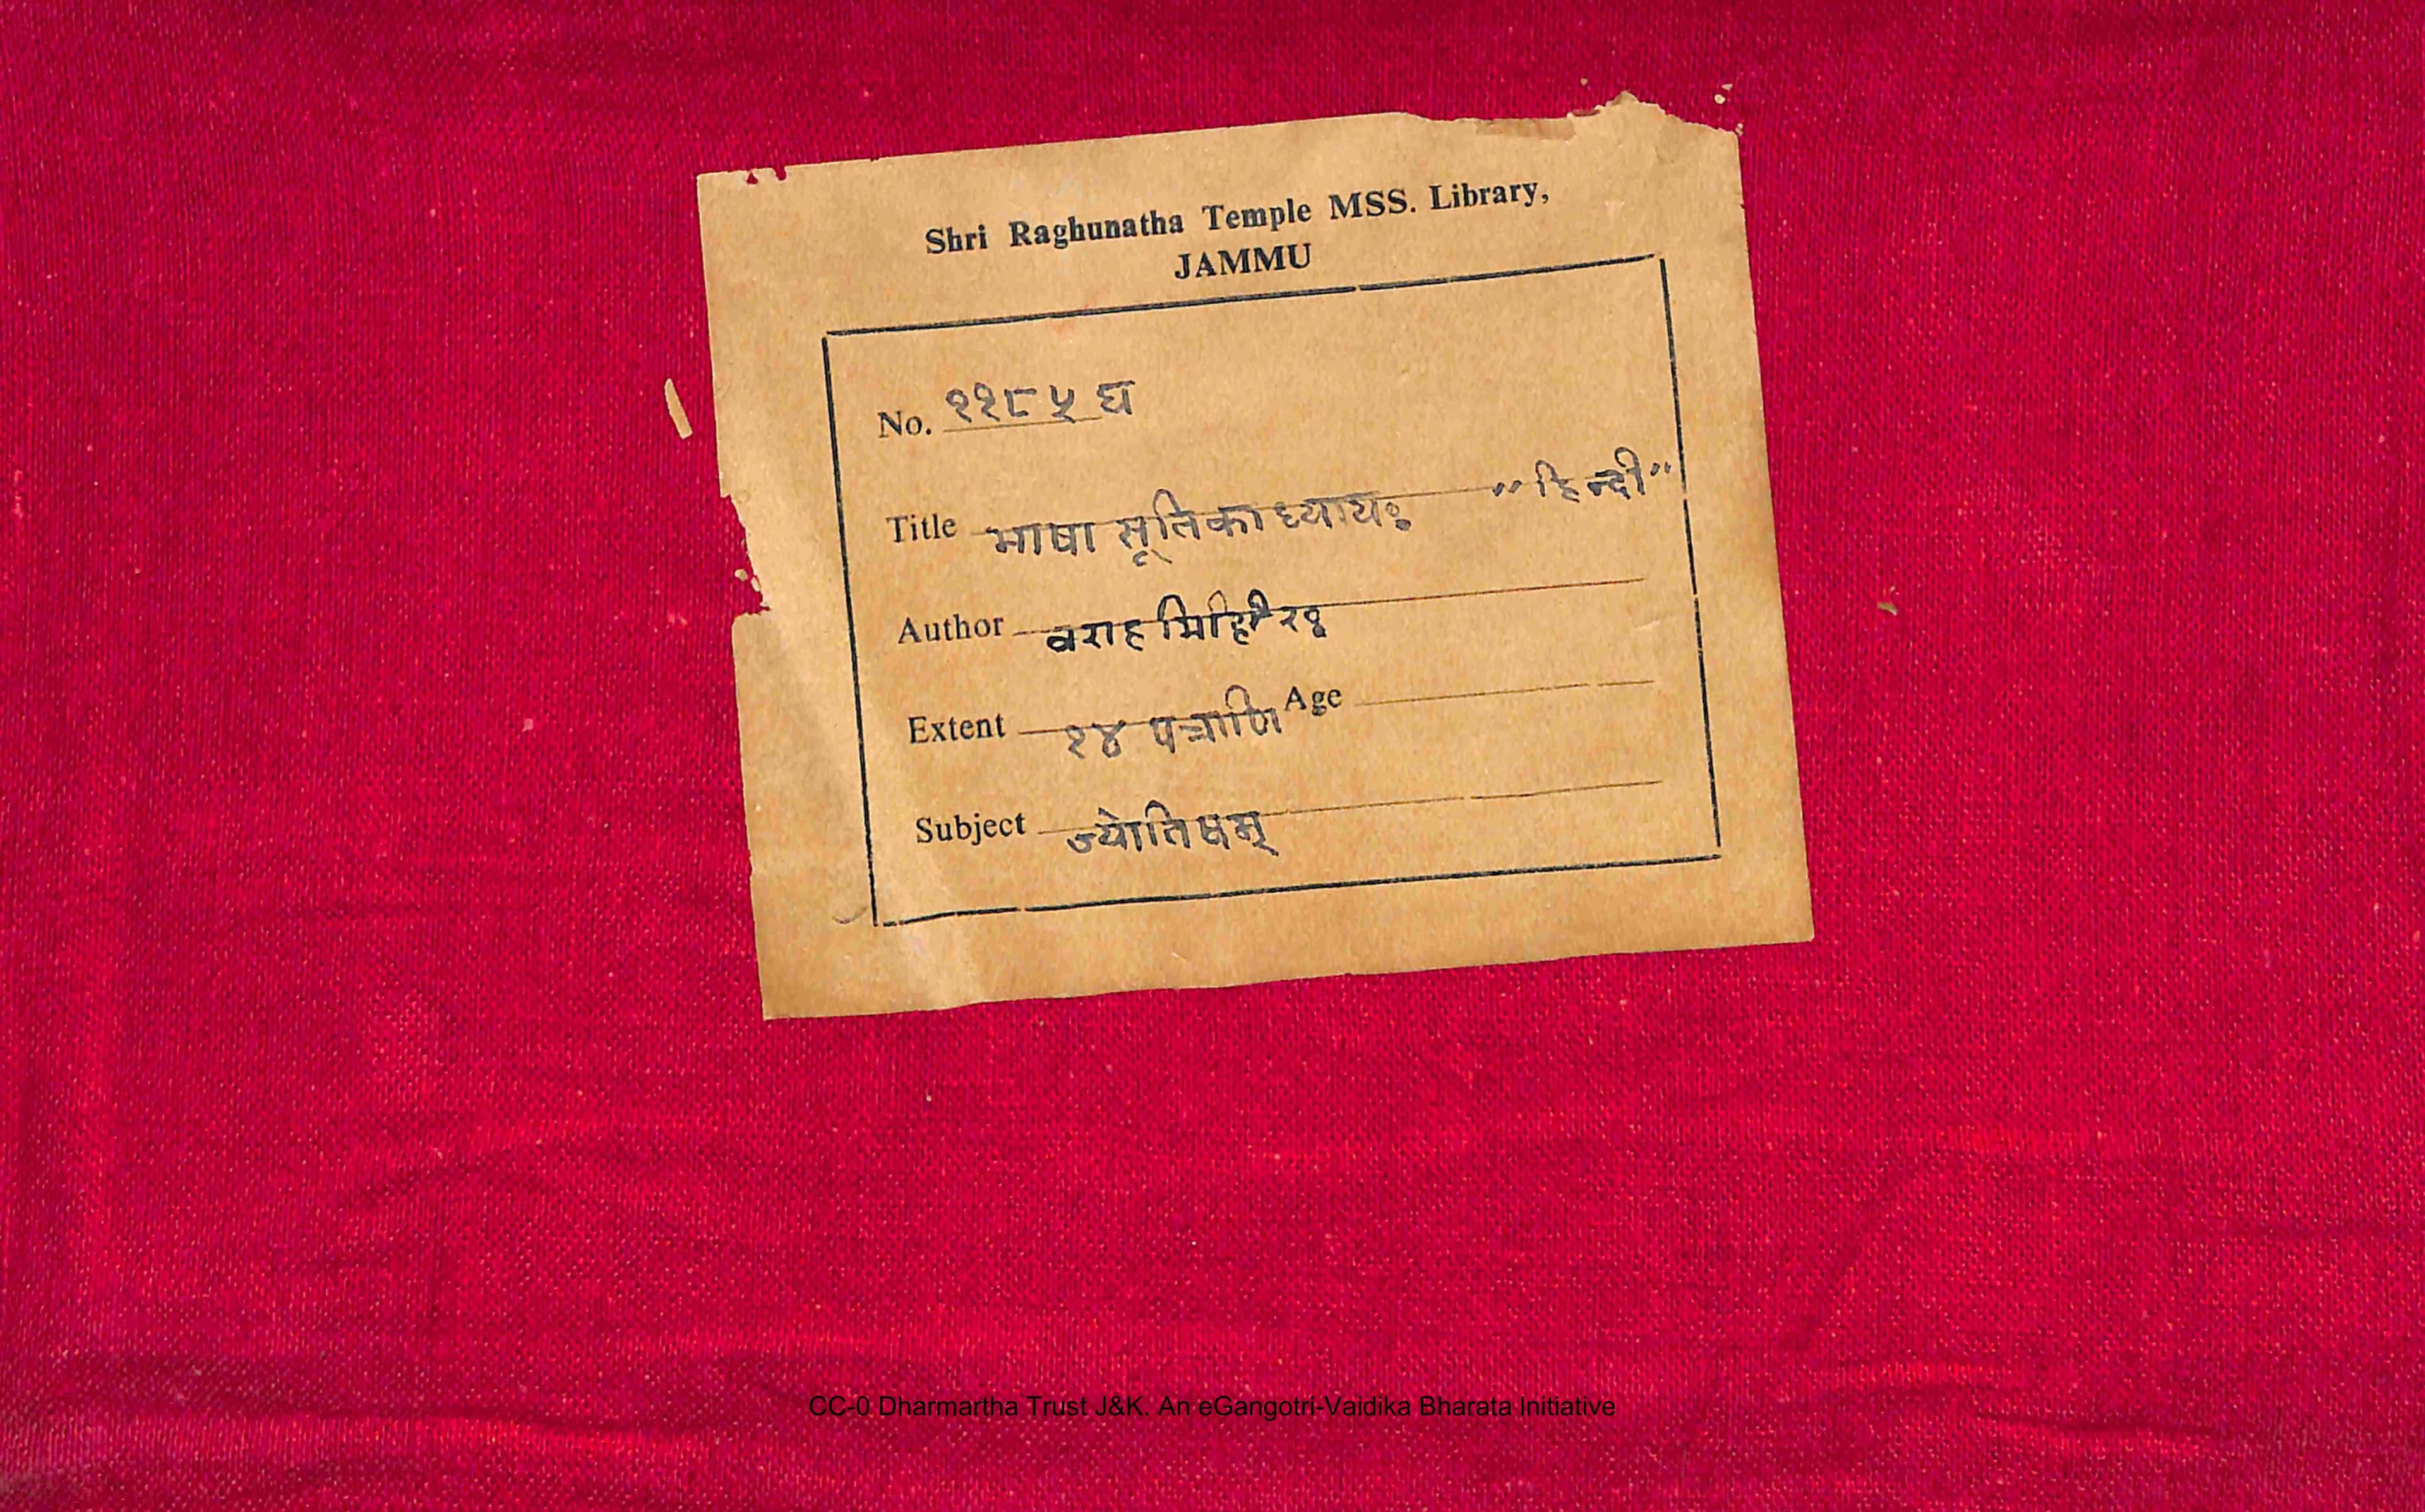 Shri Raghunatha Temple MSS. Library,
JAMMU
No. ११८५ घ
Title भाषा सूतिकाध्यायः "हिन्दी"
Author वराहमिहिरः
Extent १४ पत्राणि Age
Subject ज्योतिषम्
CC-0 Dharmartha Trust J&K. An eGangotri-Vaidika Bharata Initiative